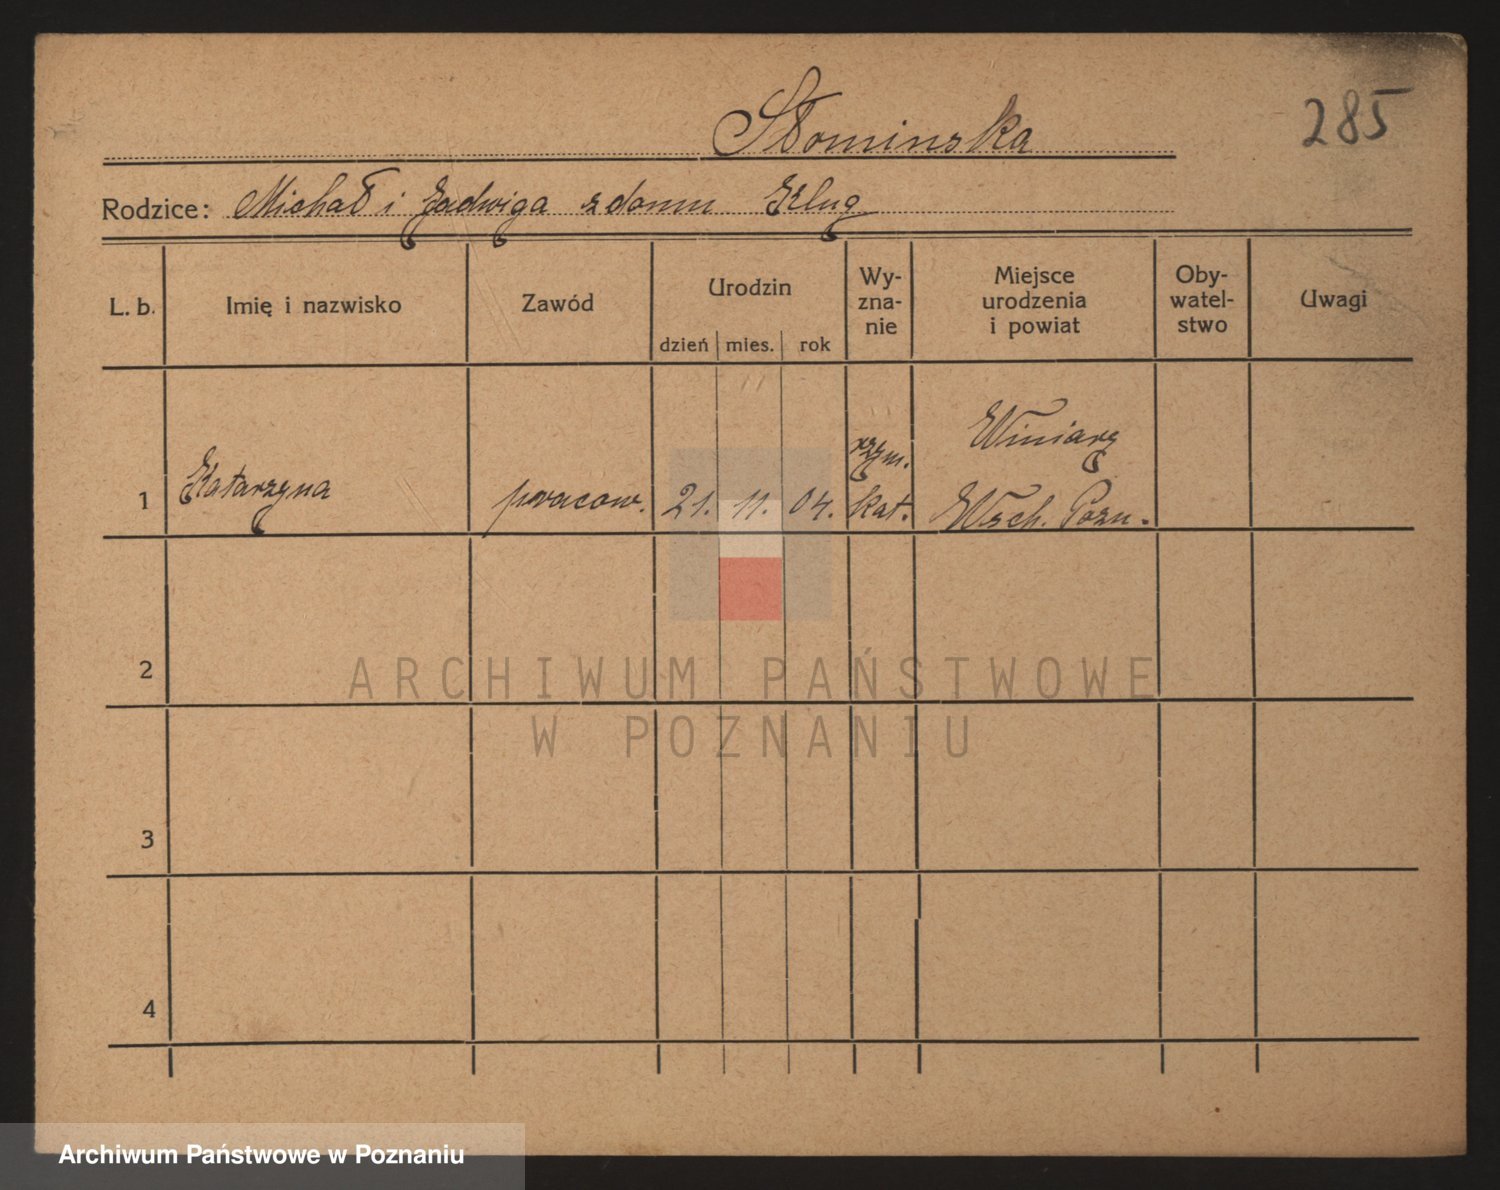 Słominska
285
Rodzice: Michał i Jadwiga z domu Klug
L. b. Imię i nazwisko Zawód Urodzin dzień mies. rok Wy-zna-nie Miejsce urodzenia i powiat Oby-watel-stwo Uwagi
Winiary
rzym.
1 Katarzyna pracow. 21. 11. 04. kat. Wsch. Pozn.
2
ARCHIWUM PAŃSTWOWE
W POZNANIU
3
4
Archiwum Państwowe w Poznaniu